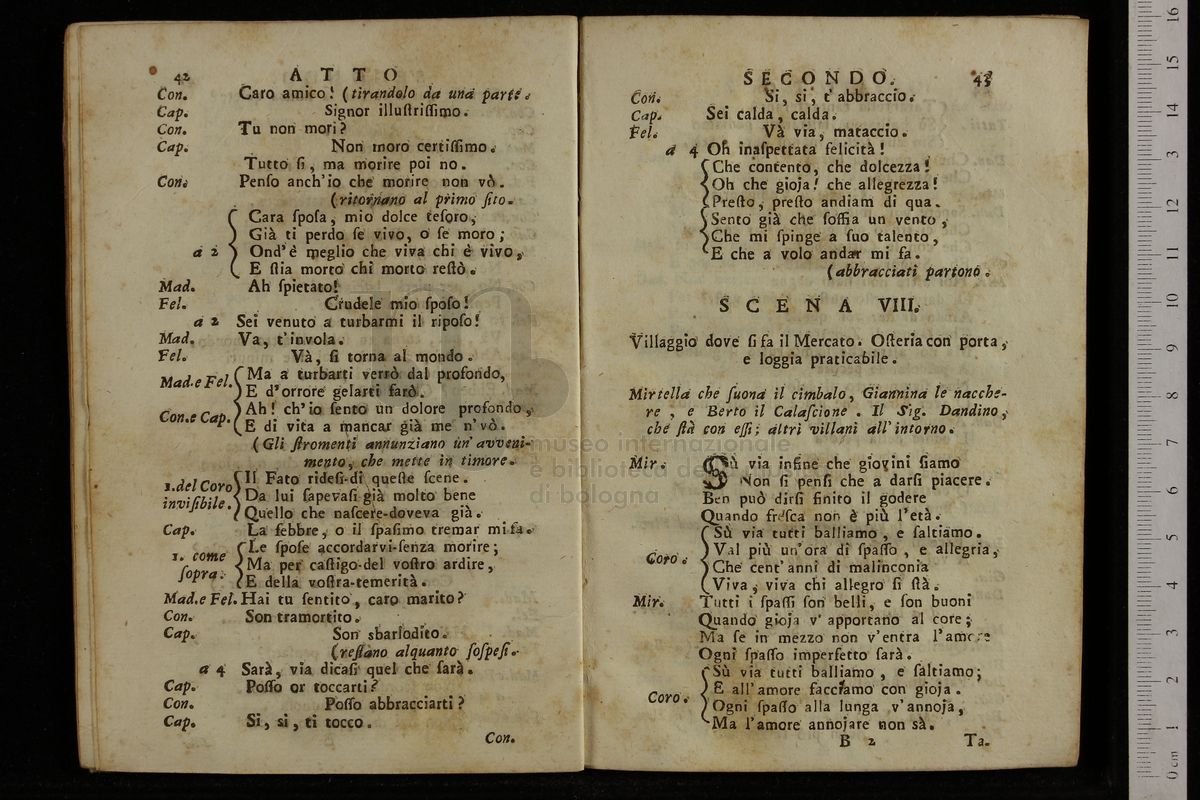 42 ATTO
Con. Caro amico! (tirandolo da una parte.
Cap. Signor illuſtriſſimo.
Con. Tu non mori?
Cap. Non moro certiſſimo.
Tutto ſi, ma morire poi no.
Con. Penſo anch'io che morire non vò.
(ritornano al primo ſito.
Cara ſpoſa, mio dolce teſoro,
Già ti perdo ſe vivo, o ſe moro;
a 2 Ond'è meglio che viva chi è vivo,
E ſtia morto chi morto reſtò.
Mad. Ah ſpietato!
Fel. Crudele mio ſpoſo!
a 2 Sei venuto a turbarmi il ripoſo!
Mad. Va, t'invola.
Fel. Và, ſi torna al mondo.
Mad.e Fel. Ma a turbarti verrò dal profondo,
E d'orrore gelarti farò.
Con.e Cap. Ah! ch'io ſento un dolore profondo,
E di vita a mancar già me n'vò.
(Gli ſtromenti annunziano un'avveni-
mento, che mette in timore.
1.del Coro inviſibile. Il Fato rideſi-di queſte ſcene.
Da lui ſapevaſi già molto bene
Quello che naſcere-doveva già.
Cap. La febbre, o il ſpaſimo tremar mi fa.
1. come ſopra. Le ſpoſe accordarvi-ſenza morire;
Ma per caſtigo-del voſtro ardire,
E della voſtra-temerità.
Mad.e Fel. Hai tu ſentito, caro marito?
Con. Son tramortito.
Cap. Son sbarlodito.
(reſtano alquanto ſoſpeſi.
a 4 Sarà, via dicaſi quel che ſarà.
Cap. Poſſo or toccarti?
Con. Poſſo abbracciarti?
Cap. Si, si, ti tocco.
Con.
SECONDO. 43
Con. Si, si, t'abbraccio.
Cap. Sei calda, calda.
Fel. Và via, mataccio.
a 4 Oh inaſpettata felicità!
Che contento, che dolcezza!
Oh che gioja! che allegrezza!
Preſto, preſto andiam di qua.
Sento già che ſoffia un vento,
Che mi ſpinge a ſuo talento,
E che a volo andar mi fa.
(abbracciati partono.
SCENA VIII.
Villaggio dove ſi fa il Mercato. Oſteria con porta,
e loggia praticabile.
Mirtella che ſuona il cimbalo, Giannina le nacche-
re, e Berto il Calaſcione. Il Sig. Dandino,
che ſtà con eſſi; altri villani all'intorno.
Mir. Sù via infine che giovini ſiamo
Non ſi penſi che a darſi piacere.
Ben può dirſi finito il godere
Quando freſca non è più l'età.
Sù via tutti balliamo, e ſaltiamo.
Coro. Val più un'ora di ſpaſſo, e allegria,
Che cent'anni di malinconia
Viva, viva chi allegro ſi ſtà.
Mir. Tutti i ſpaſſi ſon belli, e ſon buoni
Quando gioja v'apportano al core;
Ma ſe in mezzo non v'entra l'amore
Ogni ſpaſſo imperfetto ſarà.
Sù via tutti balliamo, e ſaltiamo;
Coro. E all'amore facciamo con gioja.
Ogni ſpaſſo alla lunga v'annoja,
Ma l'amore annojare non sà.
B 2 Ta-
museo internazionale
e biblioteca della musica
di bologna
0 cm 1 2 3 4 5 6 7 8 9 10 11 12 13 14 15 16